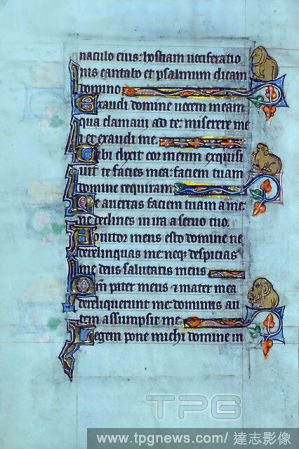 naculo eius: hostiam vociferatio
nis cantabo et psalmum dicam
domino
Exaudi domine vocem meam
qua clamavi ad te: miserere mei
et exaudi me
Tibi dixit cor meum exquisi
vit te facies mea: faciem tuam
domine requiram
Ne avertas faciem tuam a me
ne declines in ira a servo tuo
Adiutor meus esto domine ne
derelinquas me neque despicias
me deus salutaris meus
Quoniam pater meus et mater mea
dereliquerunt me: dominus au
tem assumpsit me
Legem pone michi domine in
TPG
www.tpgnews.com/達志影像